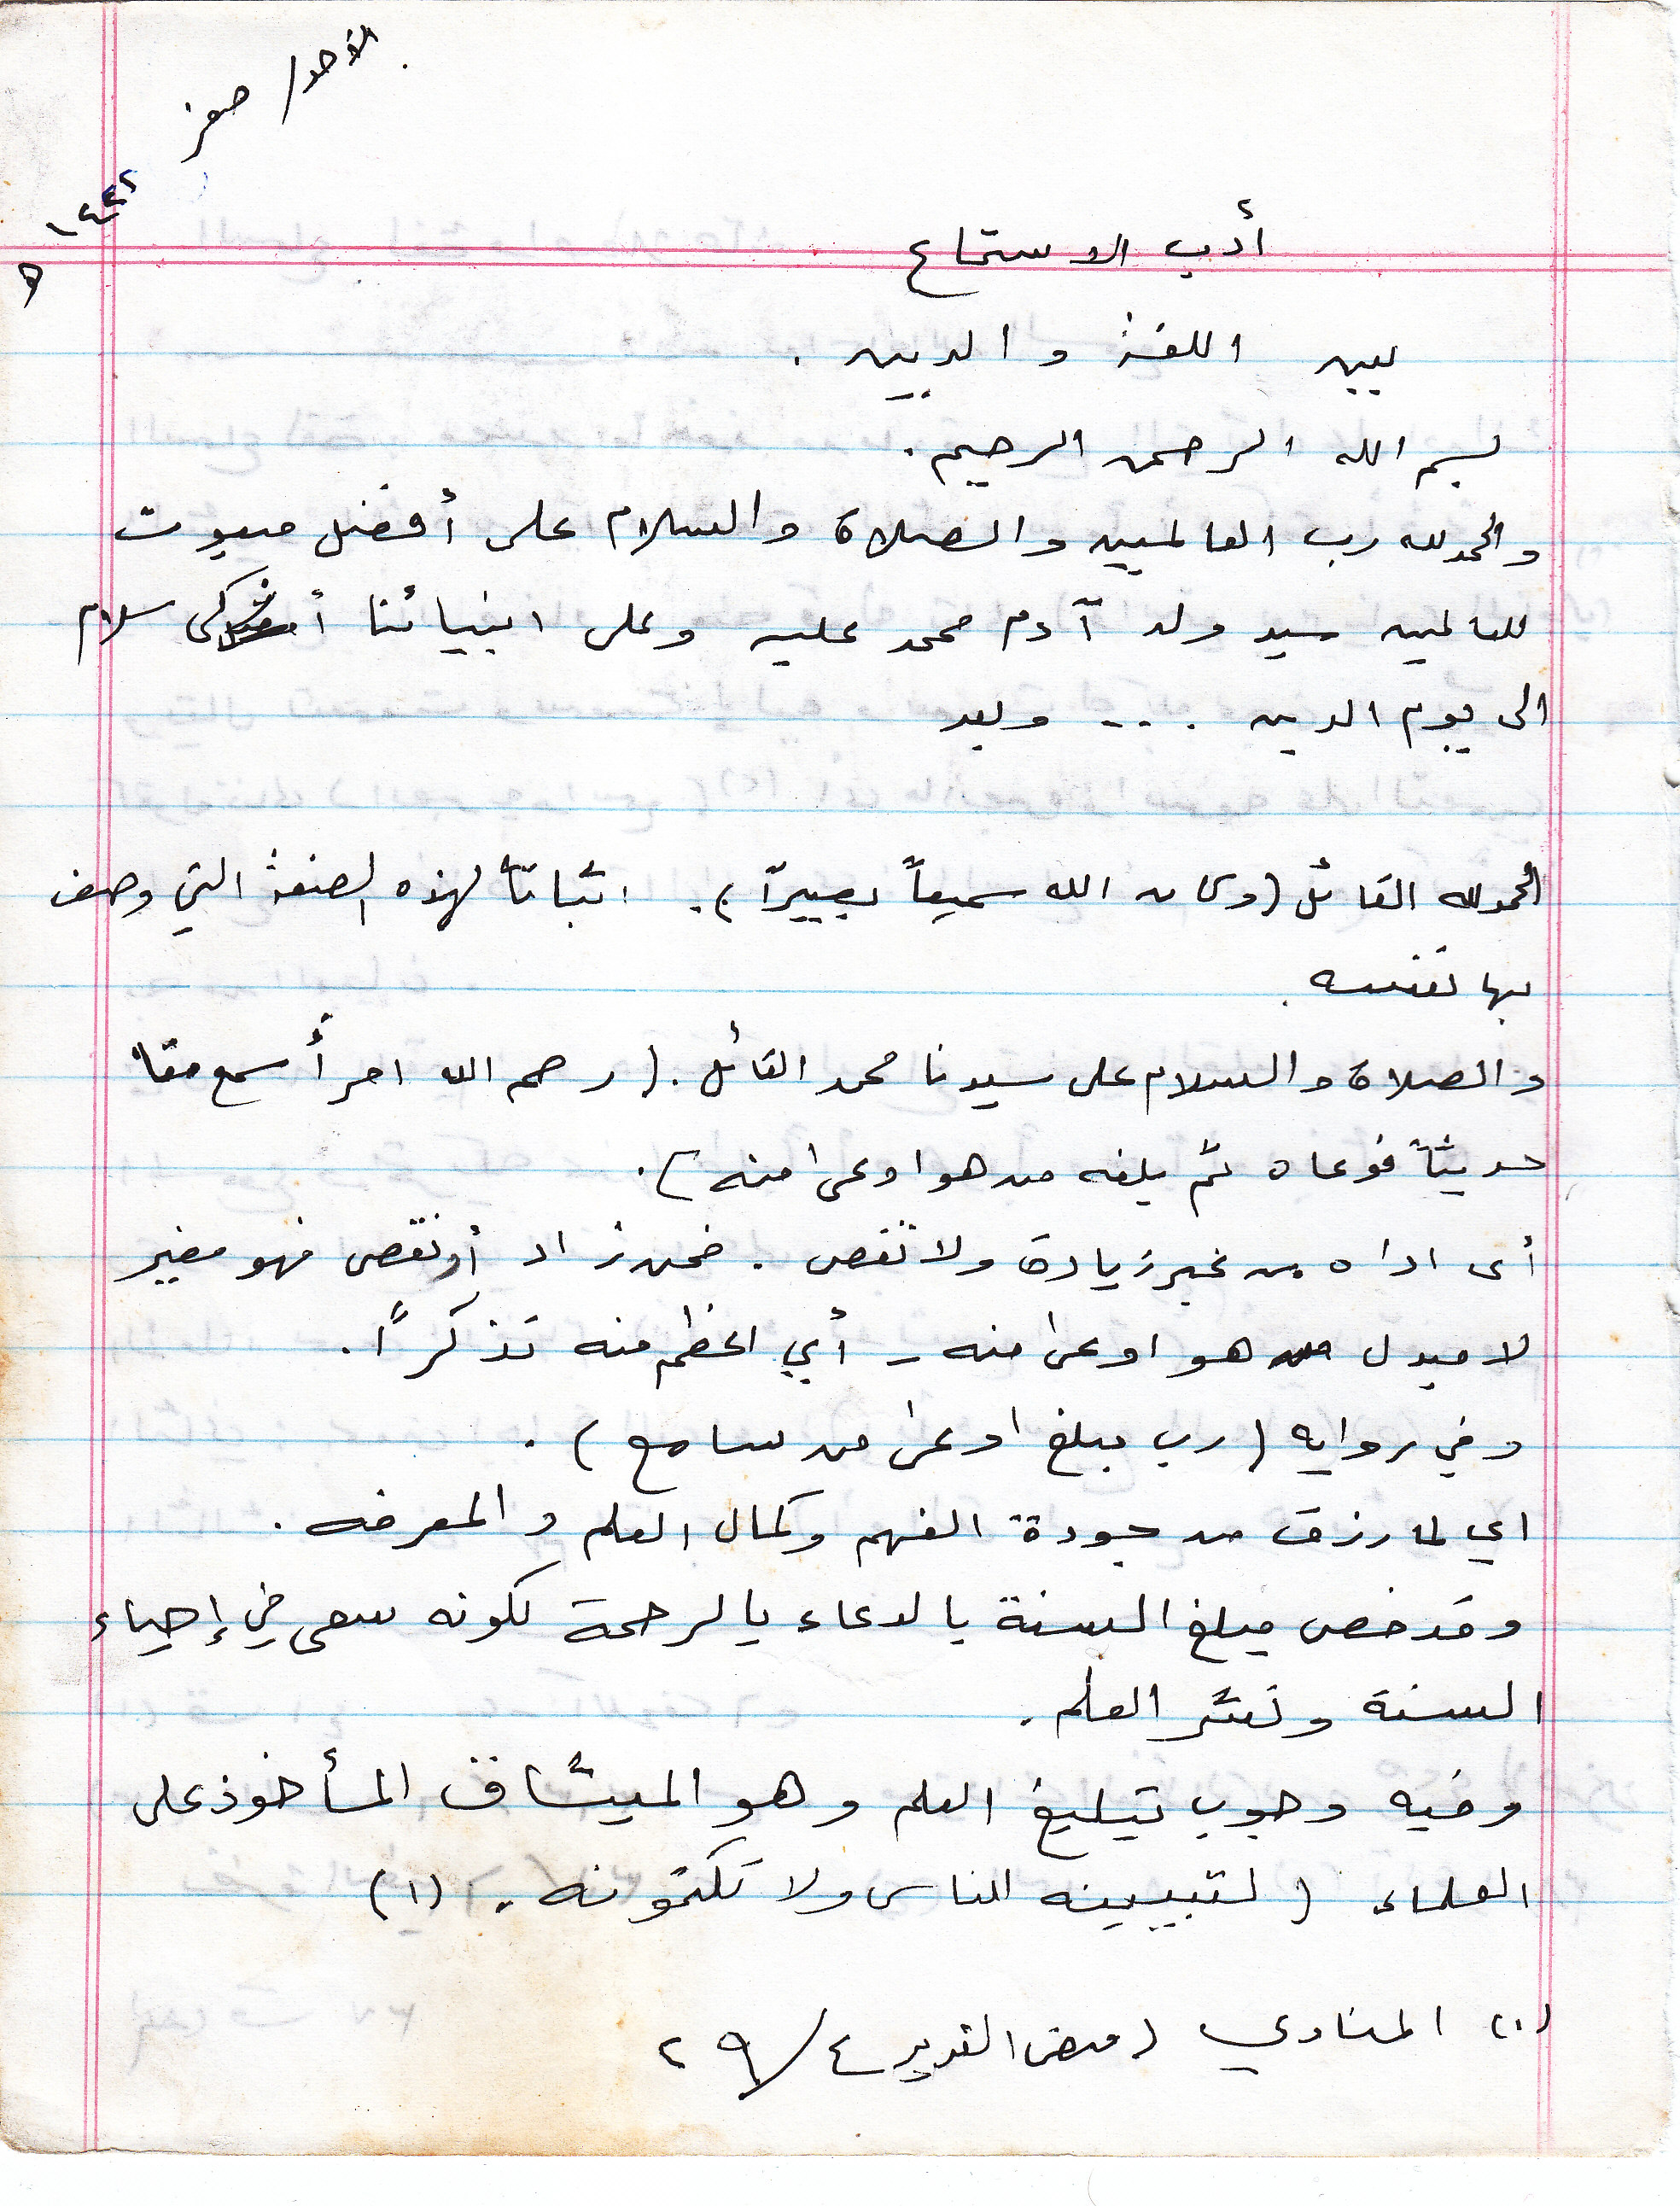 الأحد/ صفر
١٤٤٢
ه
أدب الاستماع
بين اللغة والدين .
بسم الله الرحمن الرحيم .
والحمد لله رب العالمين والصلاة والسلام على أفضل مبعوث
للعالمين سيد ولد آدم محمد عليه وعلى انبيائنا أزكى سلام
الى يوم الدين . . . وبعد
الحمد لله القائل (وكان الله سميعاً بصيراً) . اثباتاً لهذه الصفة التي وصف
بها نفسه .
والصلاة والسلام على سيدنا محمد القائل . (رحم الله امرأً سمع منا
حديثاً فوعاه ثم بلغه من هو اوعى منه) .
أى اداه من غير زيادة ولا نقص . فمن زاد أو نقص فهو مغير
لا مبدل من هو اوعى منه ـ أي اعظم منه تذكراً .
وفي روايه (رب مبلغ اوعى من سامع) .
اي لما رزق من جودة الفهم وكمال العلم والمعرفه .
وقد خص مبلغ السنة بالدعاء بالرحمة لكونه سعى في إحياء
السنة ونشر العلم .
وفيه وجوب تبليغ العلم وهو الميثاق المأخوذ على
العلماء (لتبيينه للناس ولا تكتمونه . (١)
(١) المناوي (فيض القدير ٤/٢٩